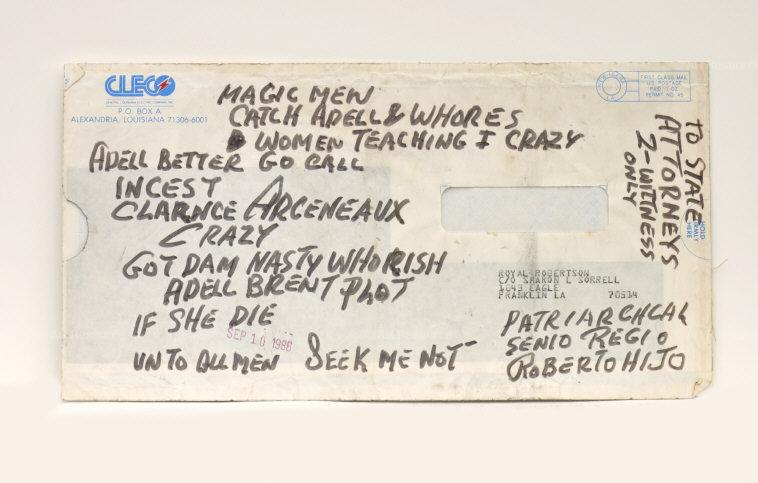 CLECO
CENTRAL LOUISIANA ELECTRIC COMPANY, INC.
P.O. BOX A
ALEXANDRIA, LOUISIANA 71306-6001
FIRST CLASS MAIL
U.S. POSTAGE
PAID 1 OZ
PERMIT NO. 45
MAGIC MEN
CATCH ADELL & WHORES
WOMEN TEACHING I CRAZY
ADELL BETTER GO CALL
INCEST
CLARNCE ARCENEAUX
CRAZY
GOT DAM NASTY WHORISH
ADELL BRENT PLOT
IF SHE DIE
SEP 10 1986
UNTO ALL MEN SEEK ME NOT
TO STATE
ATTORNEYS
2-WITTNESS
ONLY
HERE
ROYAL ROBERTSON
C/O SHARON L SORRELL
1045 EAGLE
FRANKLIN LA 70534
PATRIARCHCAL
SENIO REGIO
ROBERTO HIJO